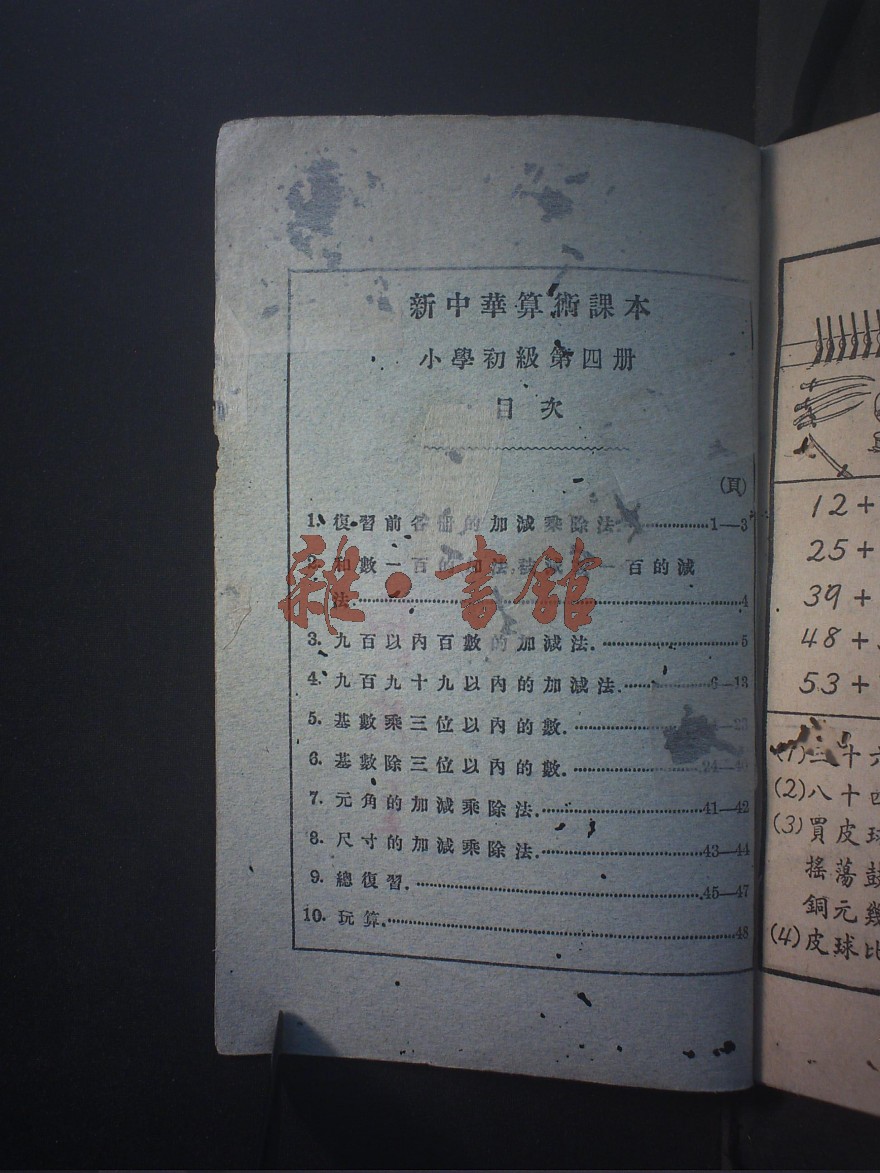 新中華算術課本
小學初級第四册
目次
(頁)
1. 復習前各冊的加減乘除法. 1—3
2. 和數一百的加法, 被減數一百的減
法. 4
3. 九百以內百數的加減法. 5
4. 九百九十九以內的加減法. 6—13
5. 基數乘三位以內的數. —23
6. 基數除三位以內的數. 24—40
7. 元角的加減乘除法. 41—42
8. 尺寸的加減乘除法. 43—44
9. 總復習. 45—47
10. 玩算. 48
雜·書館
12+
25+
39+
48+
53+
(1)三十六
(2)八十四
(3)買皮球
搖蕩鼓
銅元幾
(4)皮球比